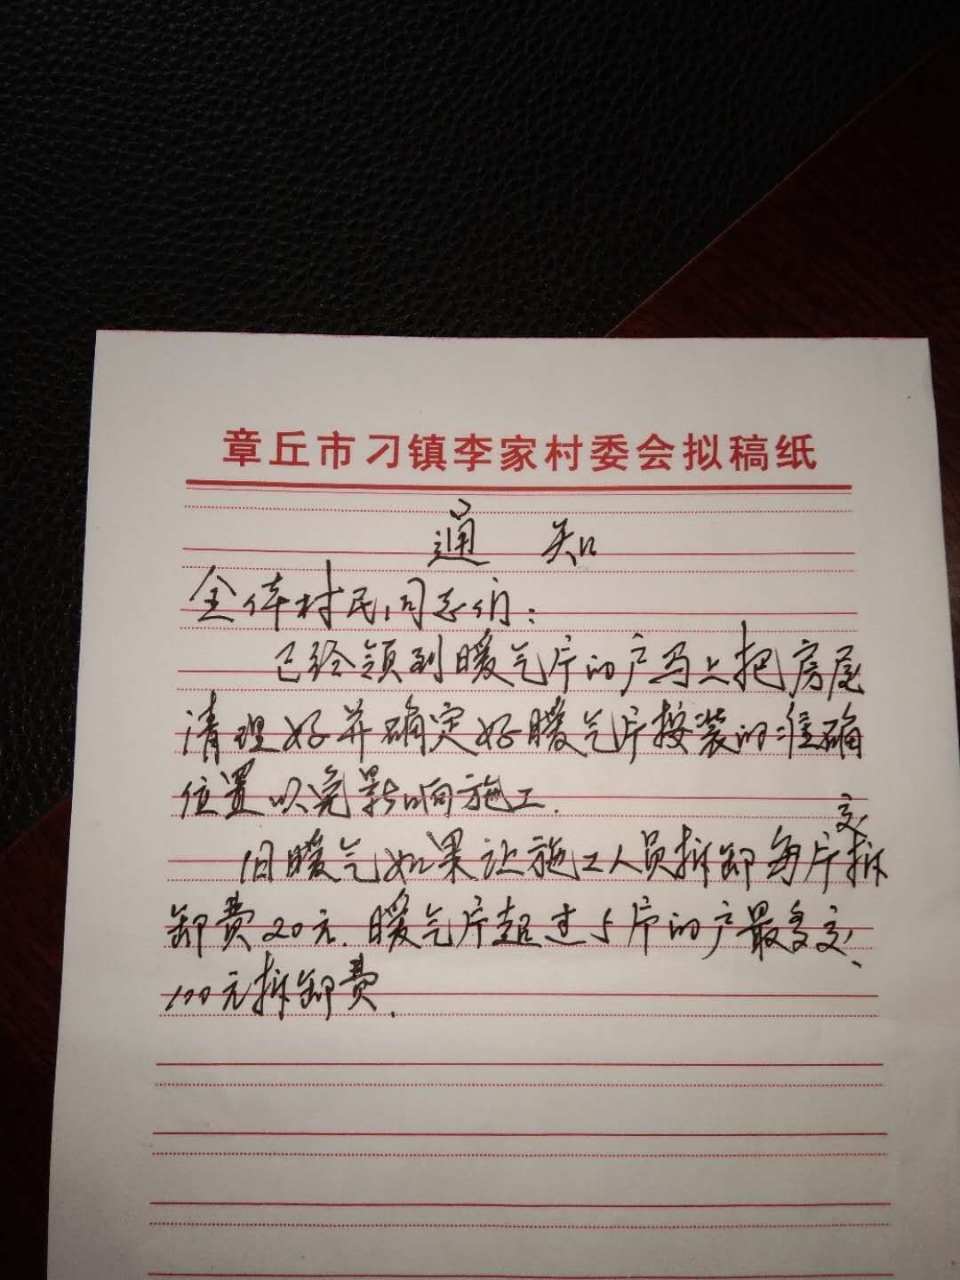 章丘市刁镇李家村委会拟稿纸
通知
全体村民同志们：
已经领到暖气片的户马上把房屋
清理好并确定好暖气片按装的准确
位置以免影响施工.
旧暖气如果让施工人员拆卸每片交拆
卸费20元.暖气片超过5片的户最多交
100元拆卸费.